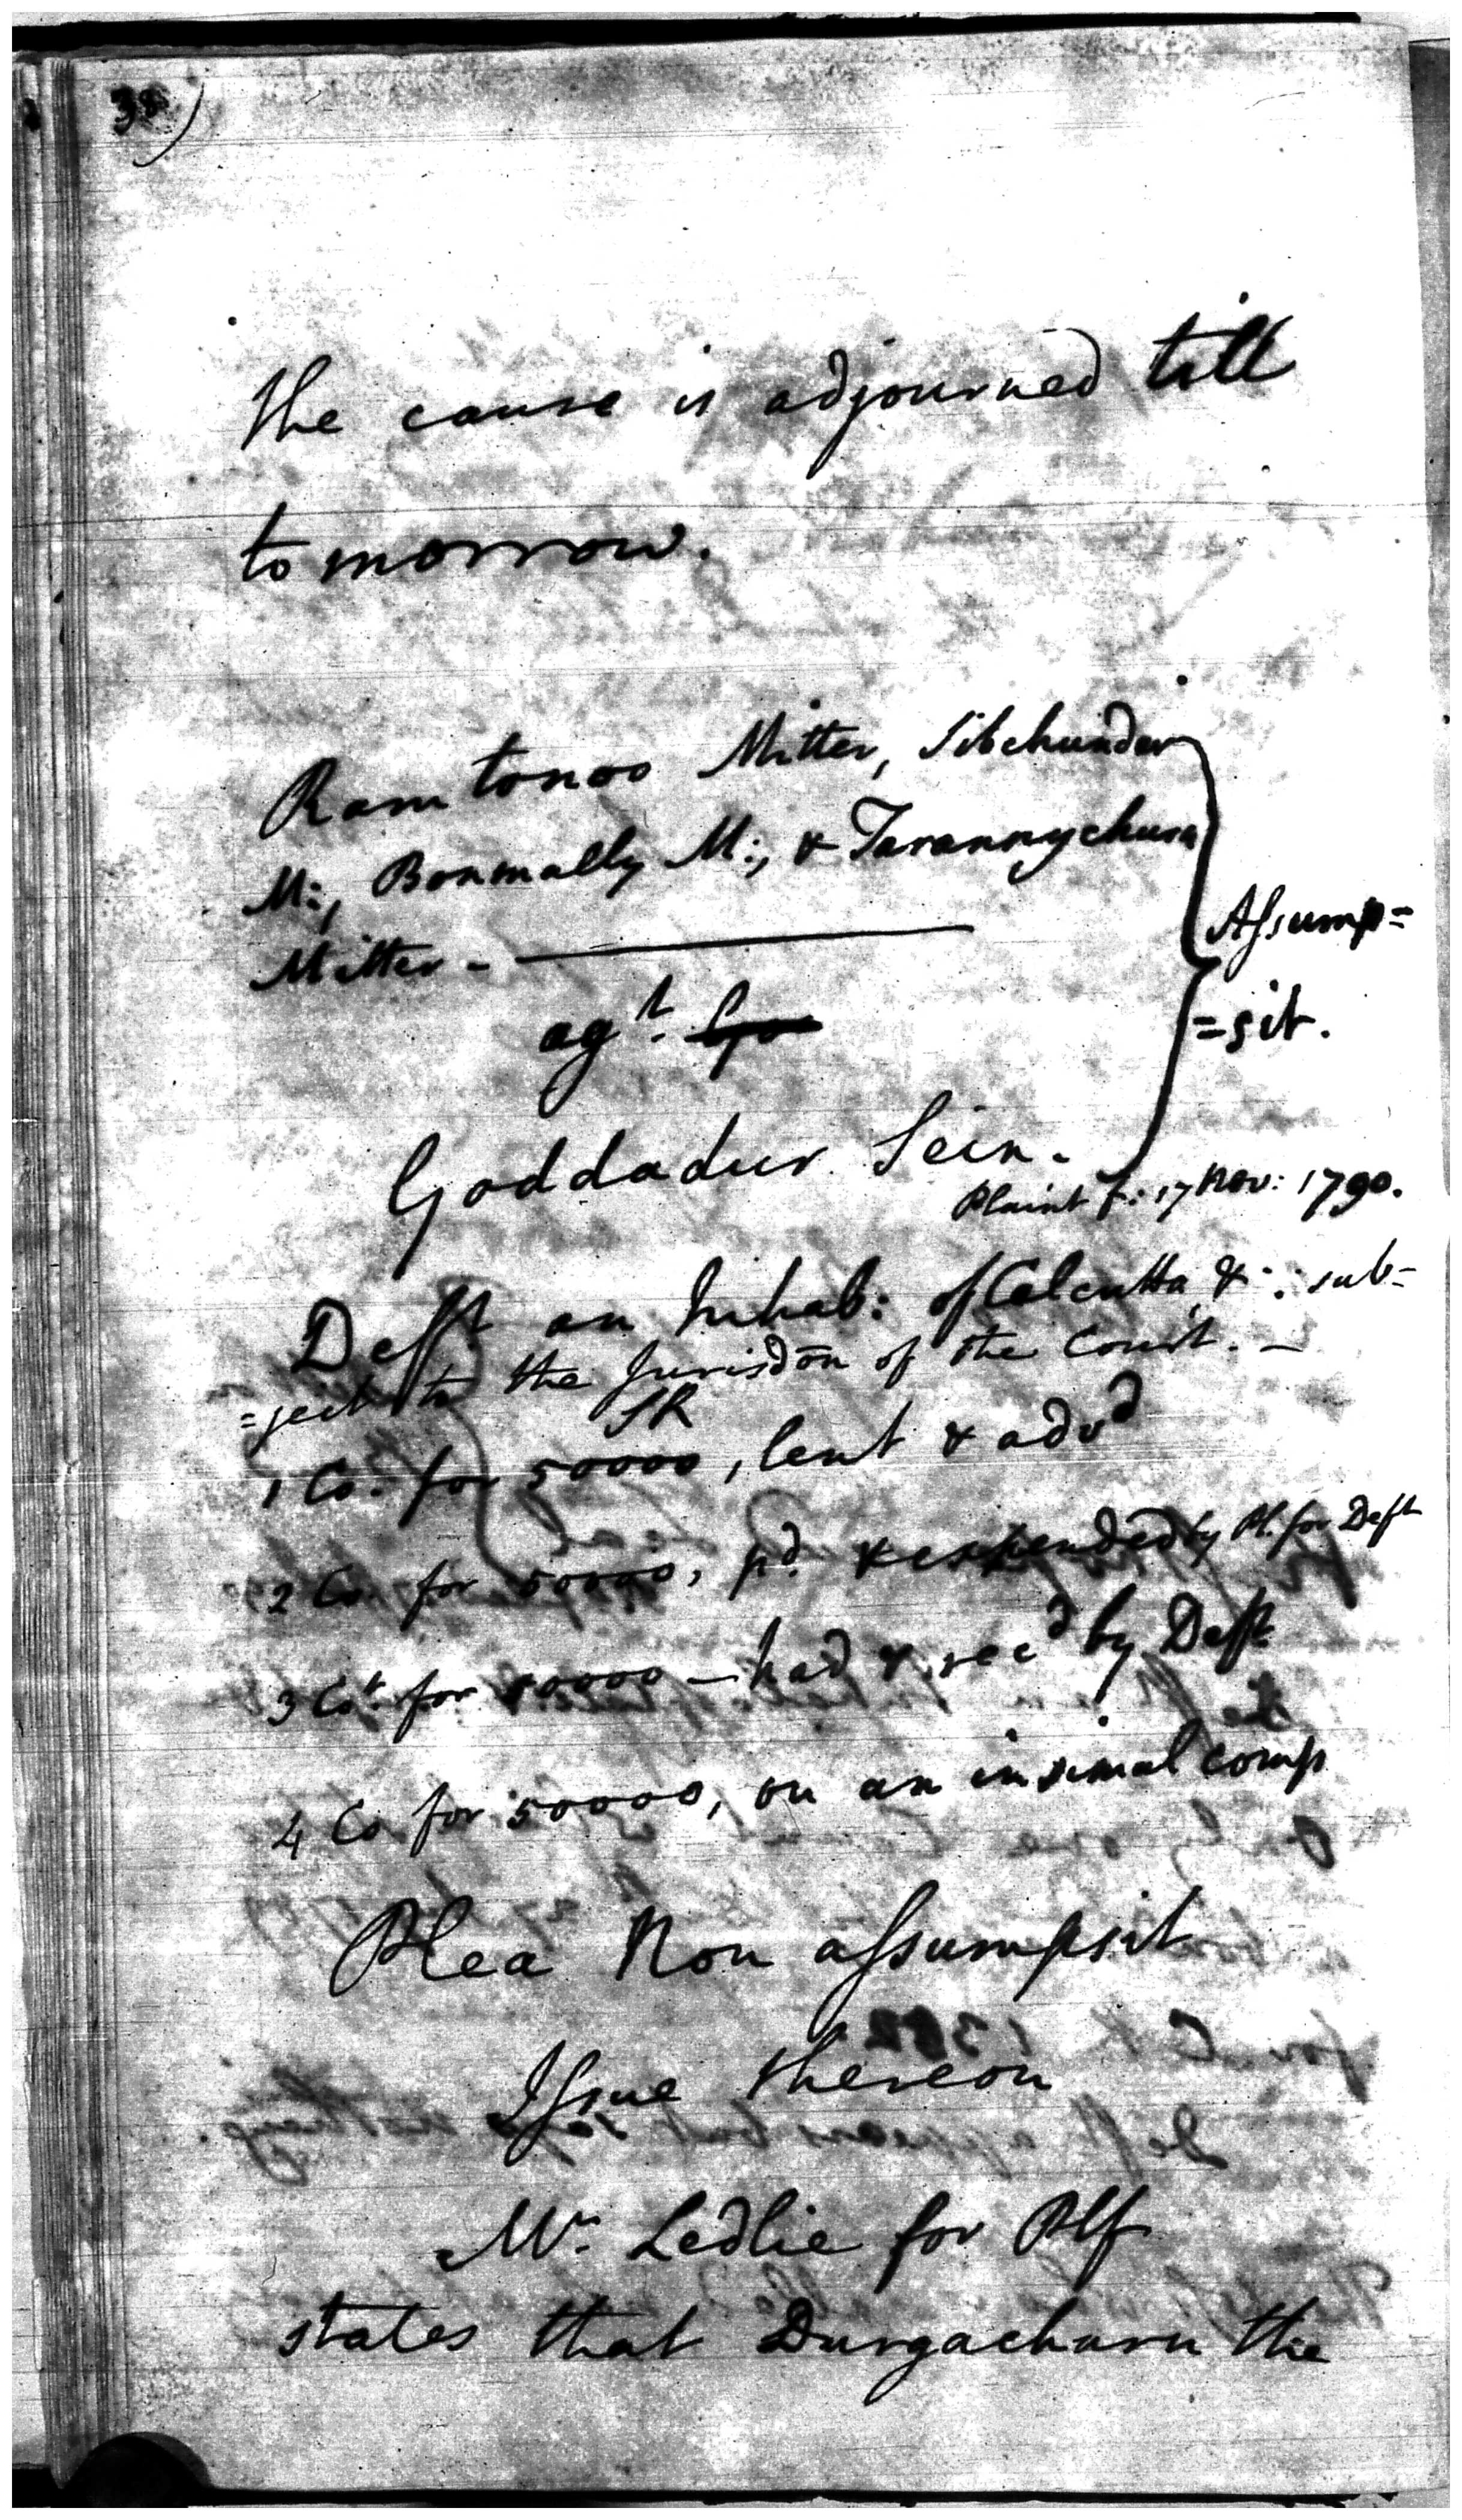 The cause is adjourned till
tomorrow.
Ramtonoo Mitter, Sibchunder
M:, Bonmally M:, & Tarannychurn
Mitter -
agt. Go
Goddadur Sein.
Assump=
=sit.
Plaint f: 17 Nov: 1790.
Deft an Inhab: of Calcutta & : sub=
=ject to the Jurisdōn of the Court. -
SR
1 Co. for 50000, lent & advd
2 Co. for 50000, pd. & expended by Pl. for Deft
3 Cot. for 50000 - had & recd by Deft
4 Co. for 50000, on an insimal comp
Plea Non assumpsit
Issue thereon
Mr. Ledlie for Plf
states that Durgachurn the